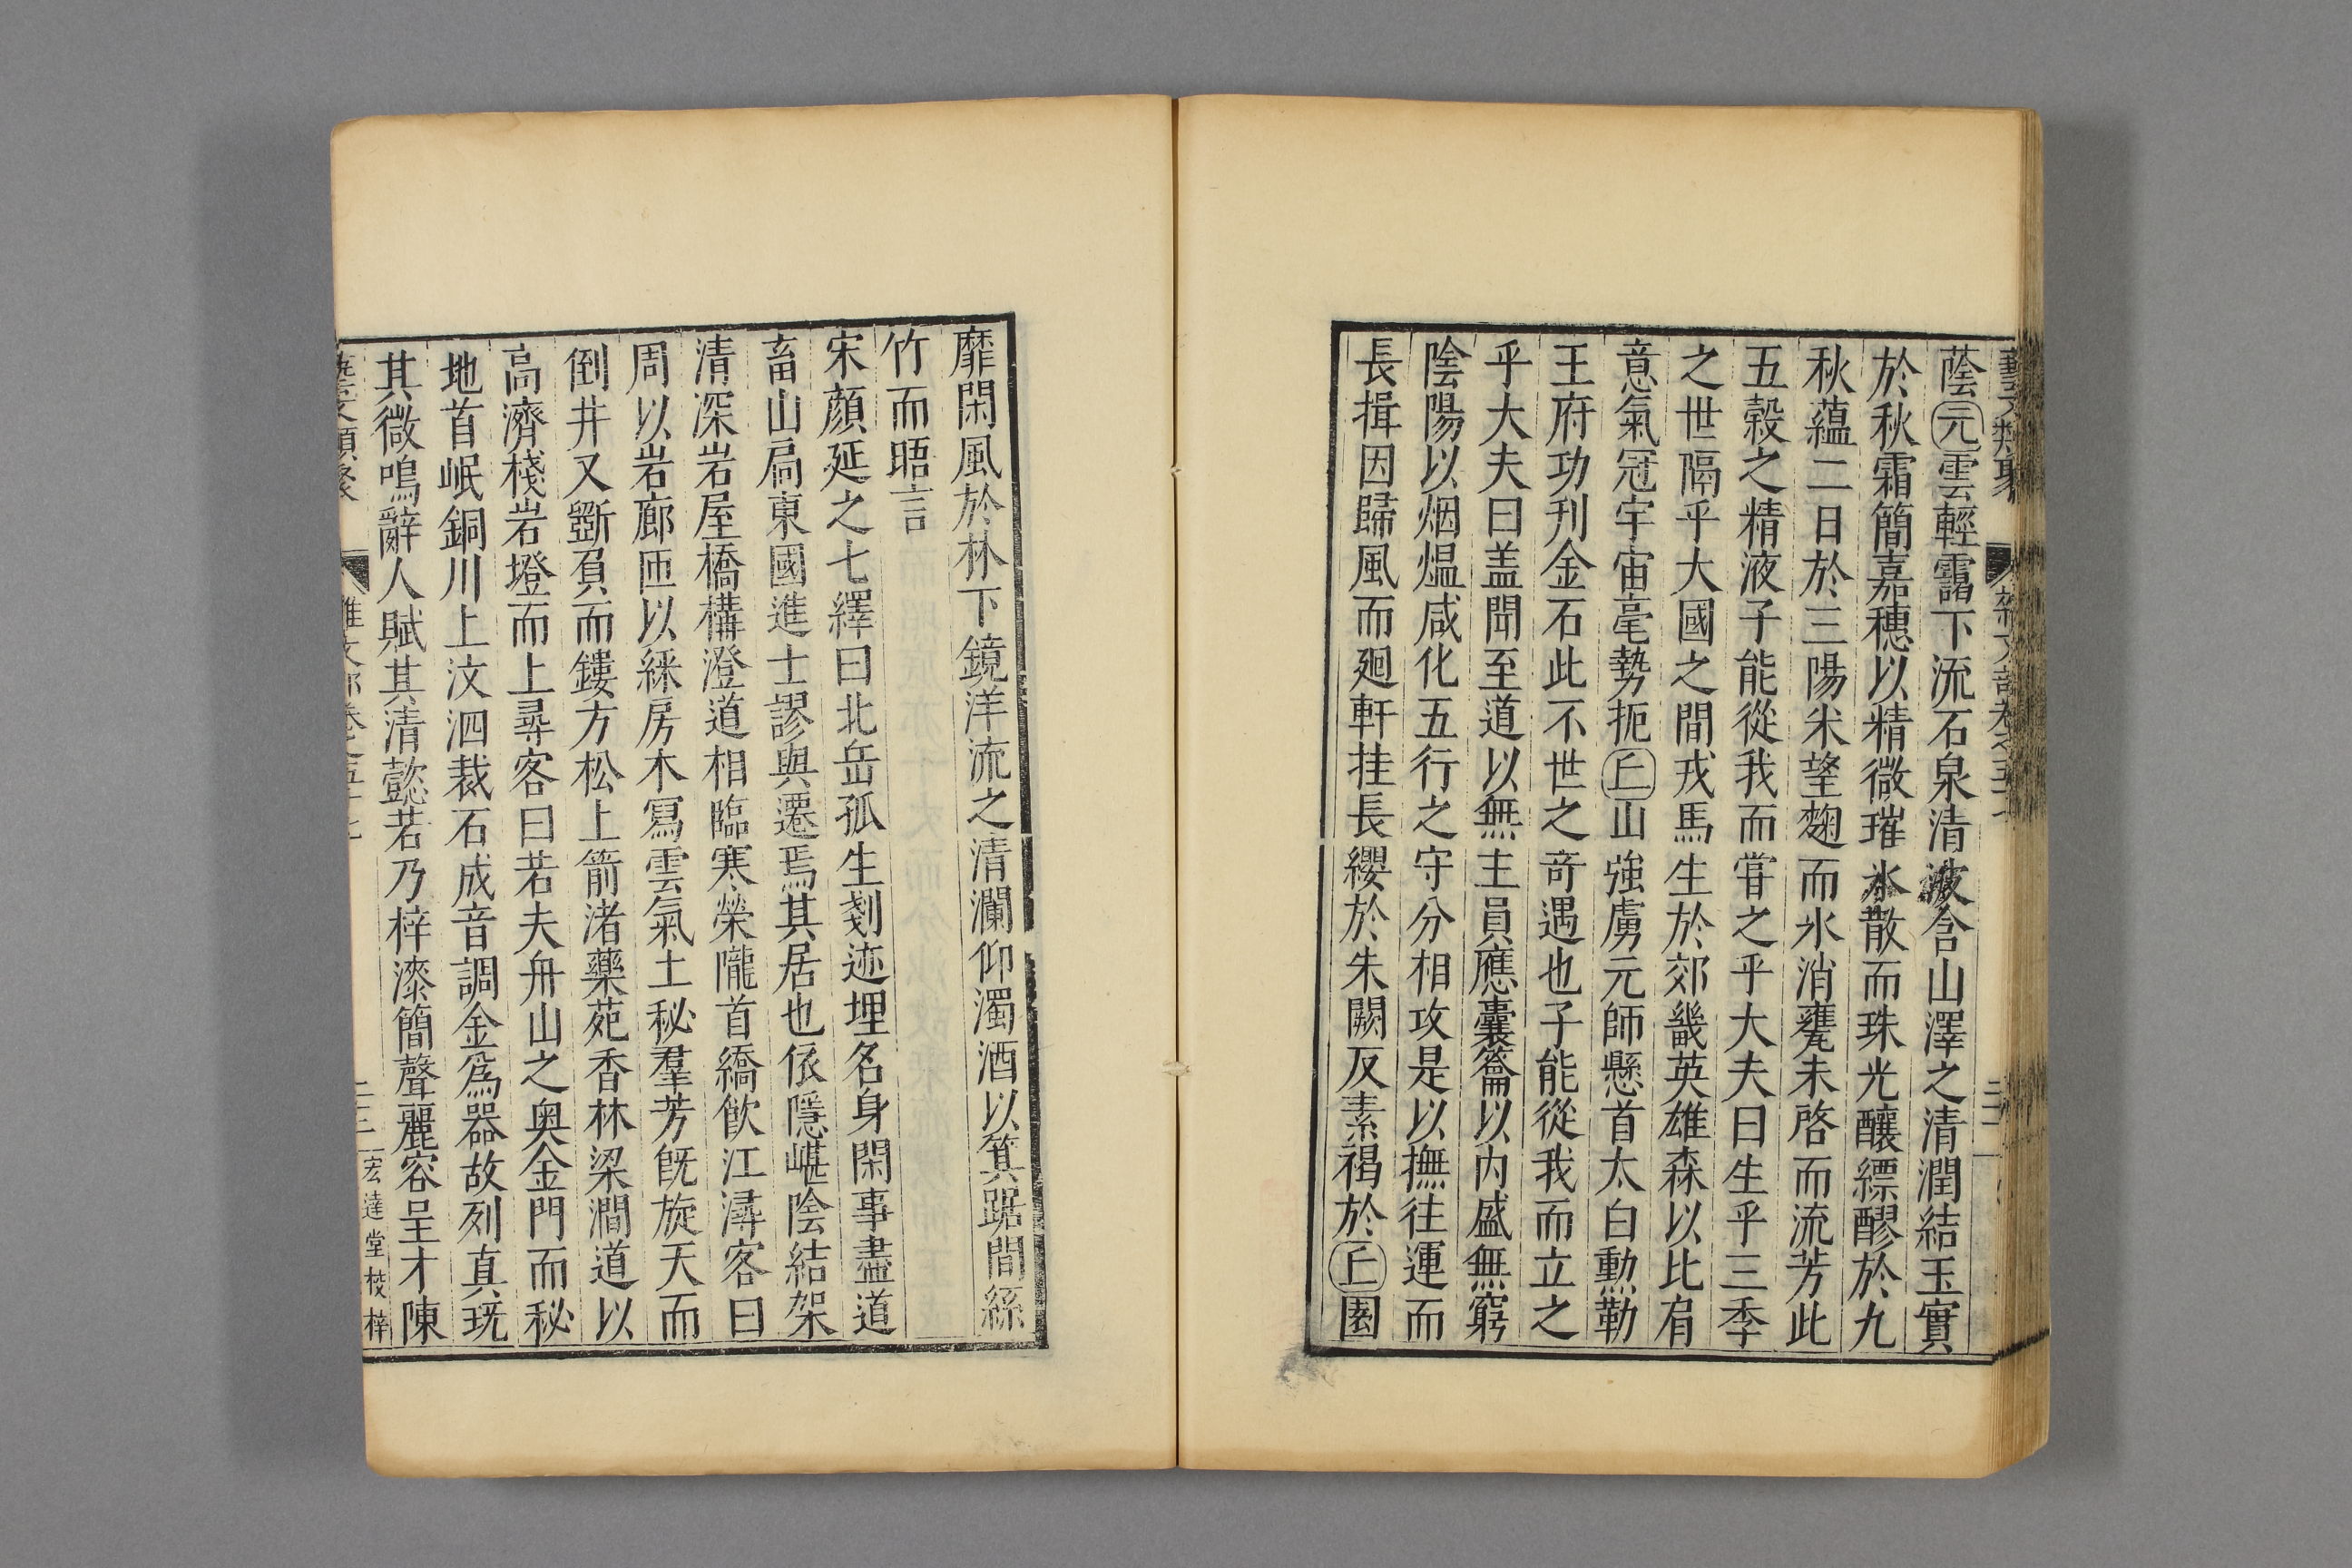 藝文類聚 雜文部卷之五十七 二十二
蔭元雲輕靄下流石泉清波含山澤之清潤結玉實
於秋霜簡嘉穗以精微璀氷散而珠光釀縹醪於九
秋蘊二日於三陽米望麹而氷消甕未啓而流芳此
五榖之精液子能從我而甞之乎大夫曰生乎三季
之世隔乎大國之間戎馬生於郊畿英雄森以比肩
意氣冠宇宙毫勢扼丘山強虜元師懸首太白勲勒
王府功刋金石此不世之竒遇也子能從我而立之
乎大夫曰盖聞至道以無主員應囊籥以内盛無窮
陰陽以烟熅咸化五行之守分相攻是以撫往運而
長揖因歸風而廻軒挂長纓於朱闕反素褐於丘園
靡閑風於林下鏡洋流之清瀾仰濁酒以箕踞間絲
竹而晤言
宋顔延之七繹曰北岳孤生剗迹埋名身閑事盡道
畜山扃東國進士謬與遷焉其居也依隱嵁陰結架
清深岩屋橋構澄道相臨寒榮隴首繑飮江潯客曰
周以岩廊匝以綵房木寫雲氣土秘羣芳旣旋天而
倒井又斵負而鏤方松上箭渚藥苑香林梁澗道以
高濟棧岩墱而上尋客曰若夫舟山之奥金門而秘
地首岷銅川上汶泗裁石成音調金爲器故列真玩
其微鳴辭人賦其清懿若乃梓漆簡聲麗容呈才陳
藝文類聚 雜文部卷之五十七 二十二 宏達堂校梓